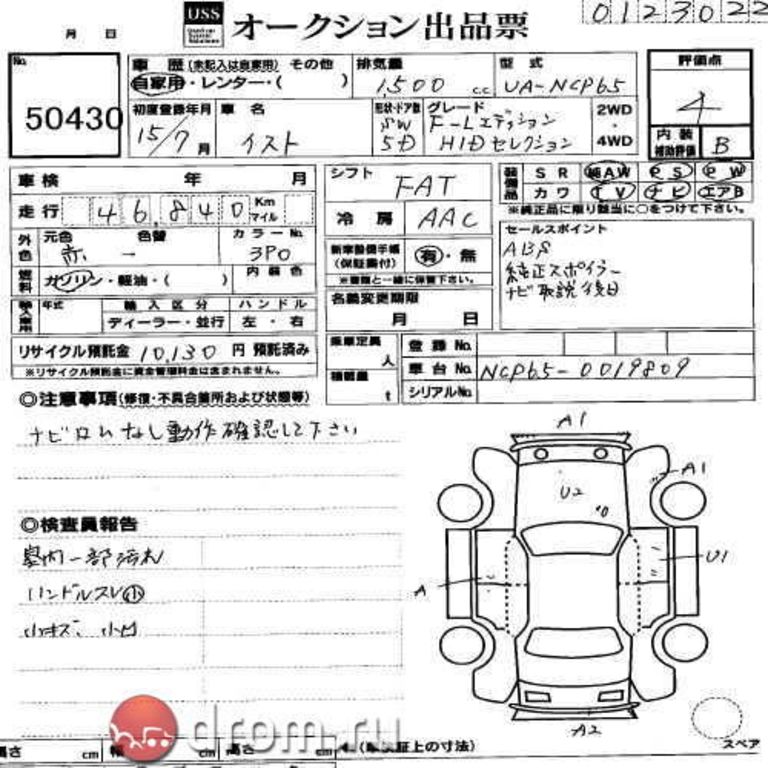 0123022
USS オークション出品票
月 日
No.
50430
車歴 (未記入は自家用) その他
自家用・レンター・( )
排気量
1,500 c.c.
型式
UA-NCP65
評価点
4
内装
補助評価 B
初度登録年月
15/7月
車名
イスト
形状・ドア数
SW
5D
グレード
F-Lエディション
HIDセレクション
2WD
・
4WD
車検 年 月
走行 46,840 Km マイル
外色 元色 色替 カラーNo.
赤 → 3P0
燃料 ガソリン・軽油・( ) 内装色
輸入車用 年式 輸入区分 ハンドル
ディーラー・並行 左・右
リサイクル預託金 10,130 円 預託済み
※リサイクル預託金に資金管理料金は含まれません。
シフト
FAT
冷房 AAC
新車整備手帳
(保証書付) 有・無
※書類と一緒に保管下さい。
名義変更期限
月 日
装備品 SR 純AW PS PW
カワ TV ナビ エアB
※純正品に限り該当に○をつけて下さい。
セールスポイント
ABS
純正スポイラー
ナビ取説後日
乗車定員 人
積載量 t
登録No.
車台No. NCP65-0019809
シリアルNo.
◎注意事項(修復・不具合箇所および状態等)
ナビロムなし動作確認して下さい
◎検査員報告
室内一部汚れ
ハンドルスレ小
小キズ、小凹
A1
A1
U2
U1
A
A2
スペア
高さ cm 幅 cm 高さ cm
(車検証上の寸法)
drom.ru